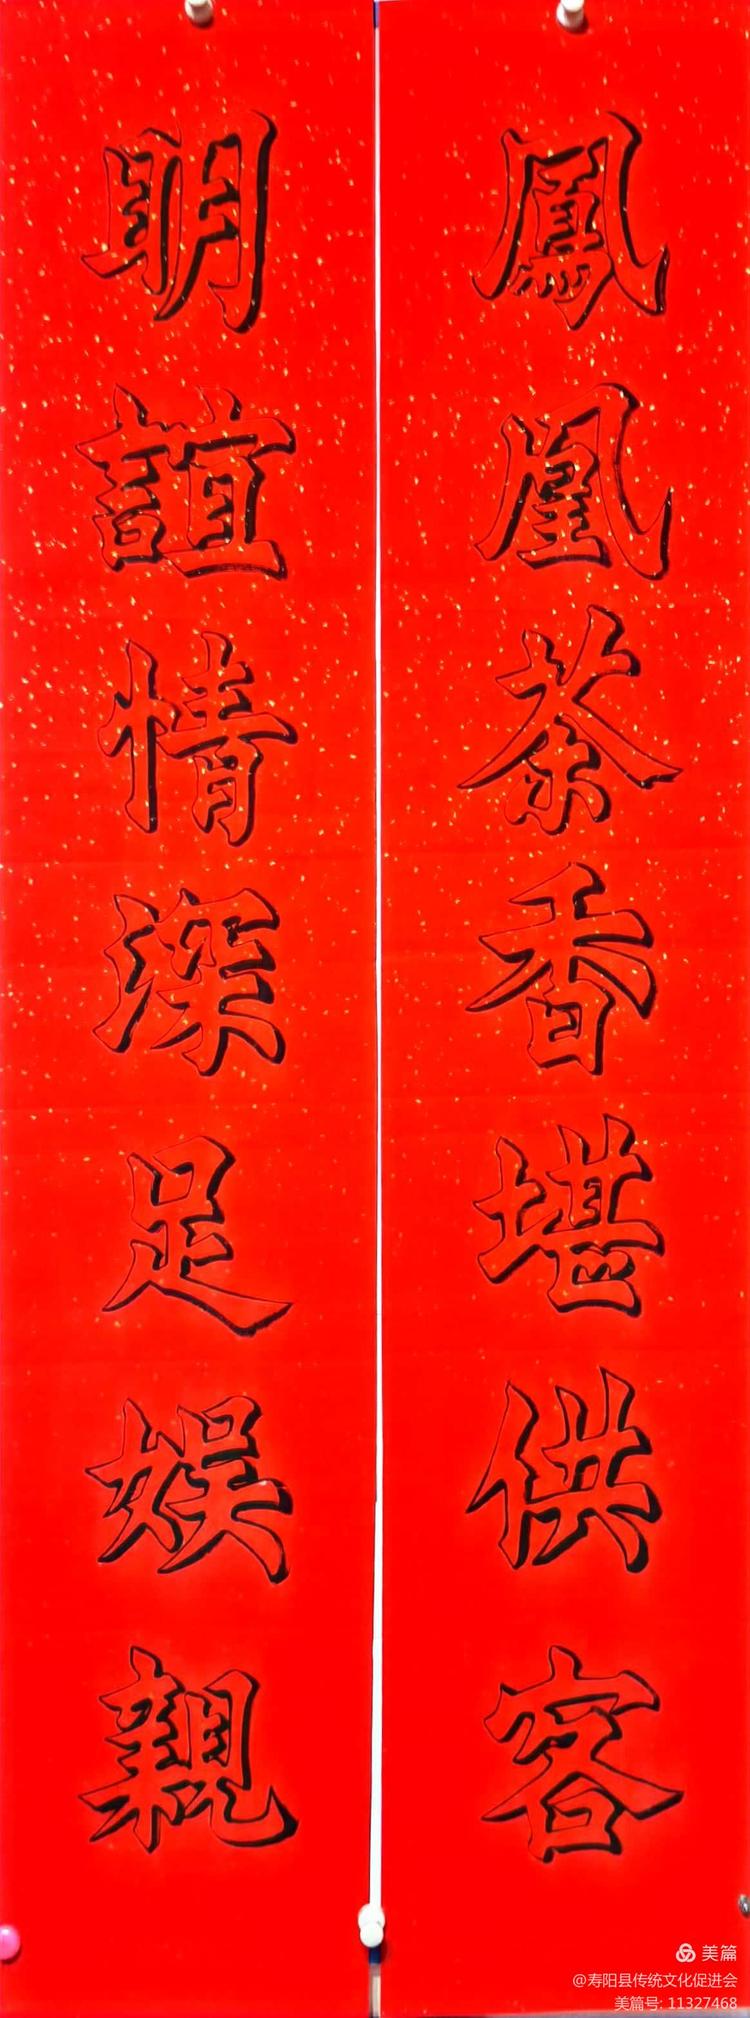 鳳凰茶香堪供客
明誼情深足娱親
美篇
@寿阳县传统文化促进会
美篇号: 11327468